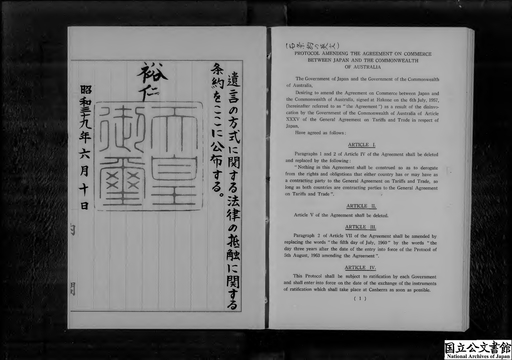 遺言の方式に関する法律の抵触に関する
条約をここに公布する。
裕仁
天皇
御璽
昭和三十九年六月十日
PROTOCOL AMENDING THE AGREEMENT ON COMMERCE
BETWEEN JAPAN AND THE COMMONWEALTH
OF AUSTRALIA
The Government of Japan and the Government of the Commonwealth
of Australia,
Desiring to amend the Agreement on Commerce between Japan and
the Commonwealth of Australia, signed at Hakone on the 6th July, 1957,
(hereinafter referred to as "the Agreement") as a result of the disinvo-
cation by the Government of the Commonwealth of Australia of Article
XXXV of the General Agreement on Tariffs and Trade in respect of
Japan,
Have agreed as follows:
ARTICLE I.
Paragraphs 1 and 2 of Article IV of the Agreement shall be deleted
and replaced by the following:
"Nothing in this Agreement shall be construed so as to derogate
from the rights and obligations that either country has or may have as
a contracting party to the General Agreement on Tariffs and Trade, as
long as both countries are contracting parties to the General Agreement
on Tariffs and Trade".
ARTICLE II.
Article V of the Agreement shall be deleted.
ARTICLE III.
Paragraph 2 of Article VII of the Agreement shall be amended by
replacing the words "the fifth day of July, 1960" by the words "the
day three years after the date of the entry into force of the Protocol of
5th August, 1963 amending the Agreement".
ARTICLE IV.
This Protocol shall be subject to ratification by each Government
and shall enter into force on the date of the exchange of the instruments
of ratification which shall take place at Canberra as soon as possible.
( 1 )
国立公文書館
National Archives of Japan